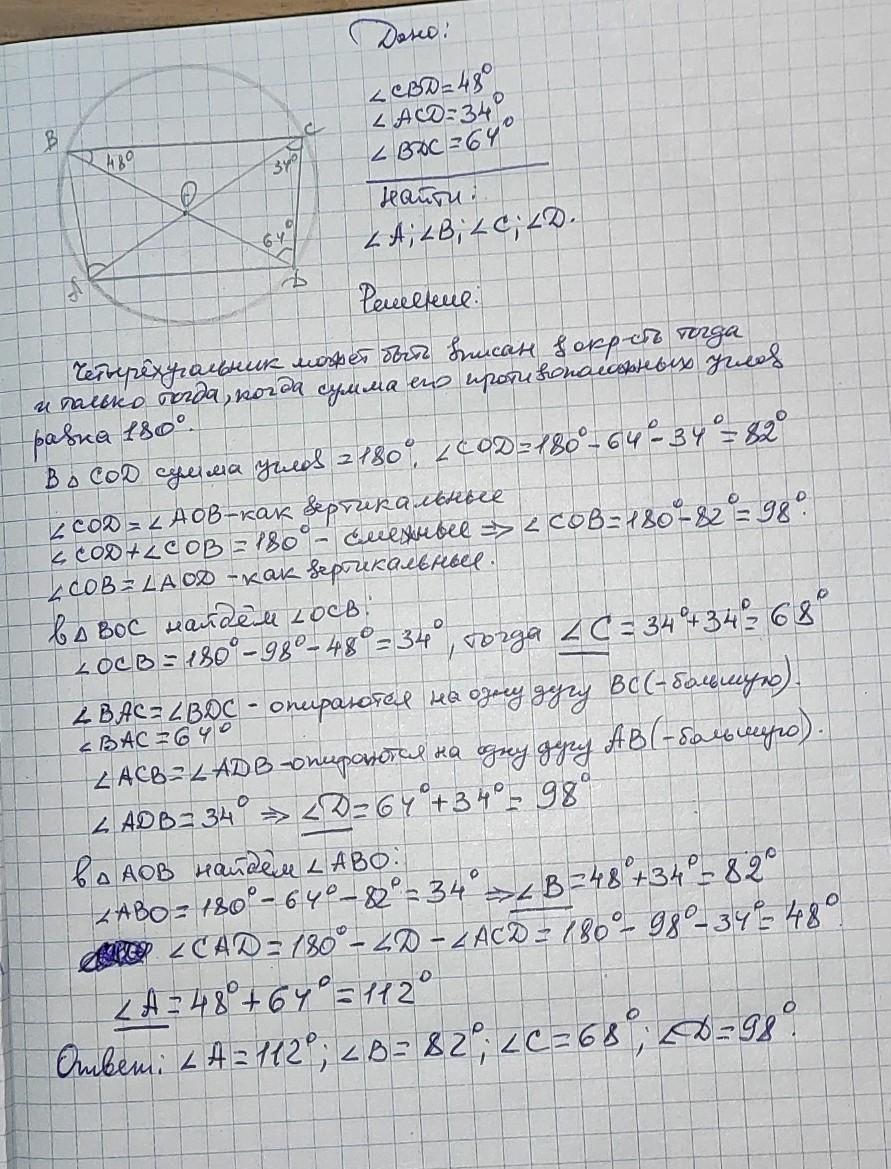 Дано:
∠CBD=48°
∠ACD=34°
∠BDC=64°
Найти:
∠A;∠B;∠C;∠D.
B
48°
C
34°
O
64°
A
D
Решение:
Четырёхугальник может быть вписан в окр-сть тогда
и только тогда, когда сумма его противоположных углов
равна 180°.
В △ COD сумма углов =180°. ∠COD=180°-64°-34°=82°
∠COD=∠AOB-как вертикальные
∠COD+∠COB=180°- смежные => ∠COB=180°-82°=98°.
∠COB=∠AOD-как вертикальные.
в △ BOC найдём ∠OCB:
∠OCB=180°-98°-48°=34°, тогда ∠C=34°+34°=68°
∠BAC=∠BDC - опираются на одну дугу BC(-большую).
∠BAC=64°
∠ACB=∠ADB-опираются на одну дугу AB(-большую).
∠ADB=34° => ∠D=64°+34°=98°
в △ AOB найдём ∠ABO:
∠ABO=180°-64°-82°=34° => ∠B=48°+34°=82°
∠CAD=180°-∠D-∠ACD=180°-98°-34°=48°.
∠A=48°+64°=112°
Ответ: ∠A=112°; ∠B=82°; ∠C=68°; ∠D=98°.